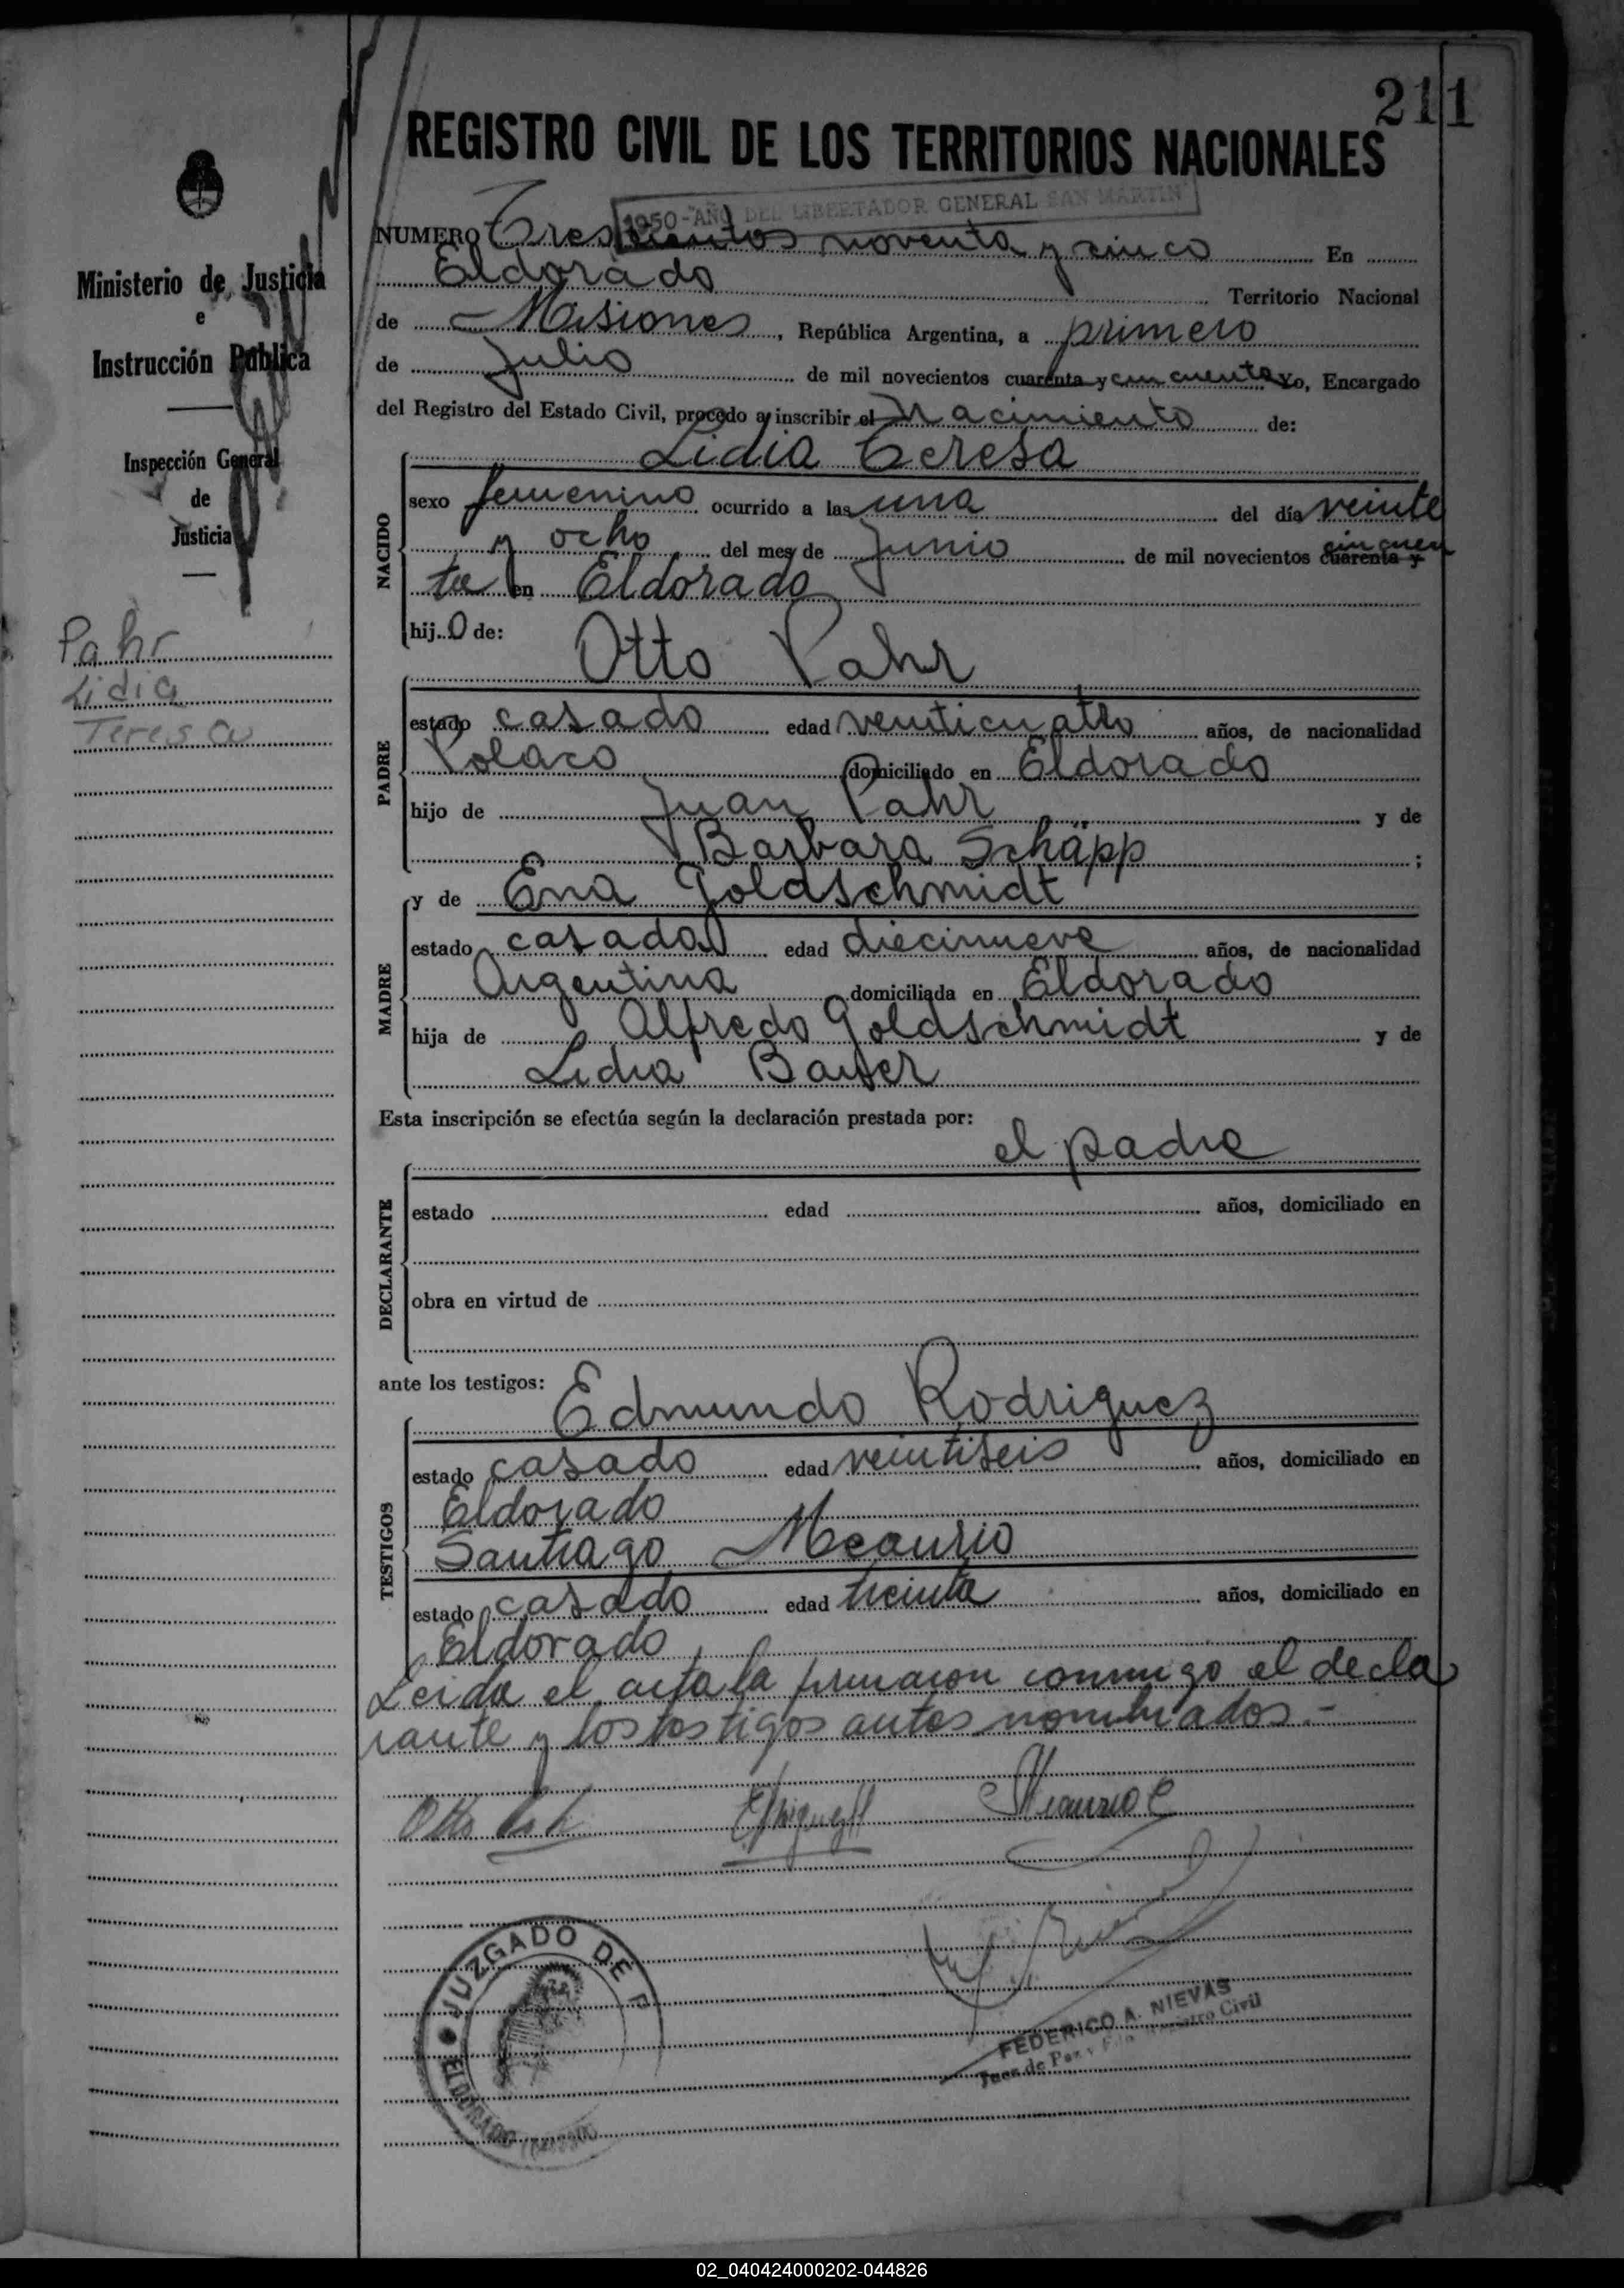 211
REGISTRO CIVIL DE LOS TERRITORIOS NACIONALES
1950-AÑO DEL LIBERTADOR GENERAL SAN MARTIN
NUMERO Trescientos noventa y cinco En
Eldorado Territorio Nacional
de Misiones, República Argentina, a primero
de Julio de mil novecientos cuarenta y cincuenta Yo, Encargado
del Registro del Estado Civil, procedo a inscribir el Nacimiento de:
Lidia Teresa
NACIDO
sexo femenino ocurrido a las una del día veinte
y ocho del mes de Junio de mil novecientos cuarenta y cincuen
ta en Eldorado
hij.o de: Otto Pahr
PADRE
estado casado edad veinticuatro años, de nacionalidad
Polaco domiciliado en Eldorado
hijo de Juan Pahr y de
Barbara Schäpp ;
MADRE
y de Ena Goldschmidt
estado casada edad diecinueve años, de nacionalidad
Argentina domiciliada en Eldorado
hija de Alfredo Goldschmidt y de
Lidia Bauer
Esta inscripción se efectúa según la declaración prestada por:
el padre
DECLARANTE
estado edad años, domiciliado en
obra en virtud de
ante los testigos: Edmundo Rodriguez
TESTIGOS
estado casado edad veintiseis años, domiciliado en
Eldorado
Santiago Meaurio
estado casado edad treinta años, domiciliado en
Eldorado
Leida el acta la firmaron conmigo el decla
rante y los testigos antes nombrados.-
Otto Pahr
JUZGADO DE P
ELDORADO
FEDERICO A. NIEVAS
Juez de Paz Registro Civil
Ministerio de Justicia
e
Instrucción Pública
Inspección General
de
Justicia
Pahr
Lidia
Teresa
02_040424000202-044826